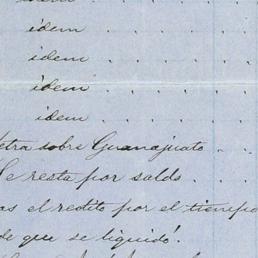 idem . . . . .
idem . . . . .
idem . . . . .
idem . . . . .
letra sobre Guanajuato . .
Se resta por saldo . .
as el redito por el tiempo
de que se liquidó.